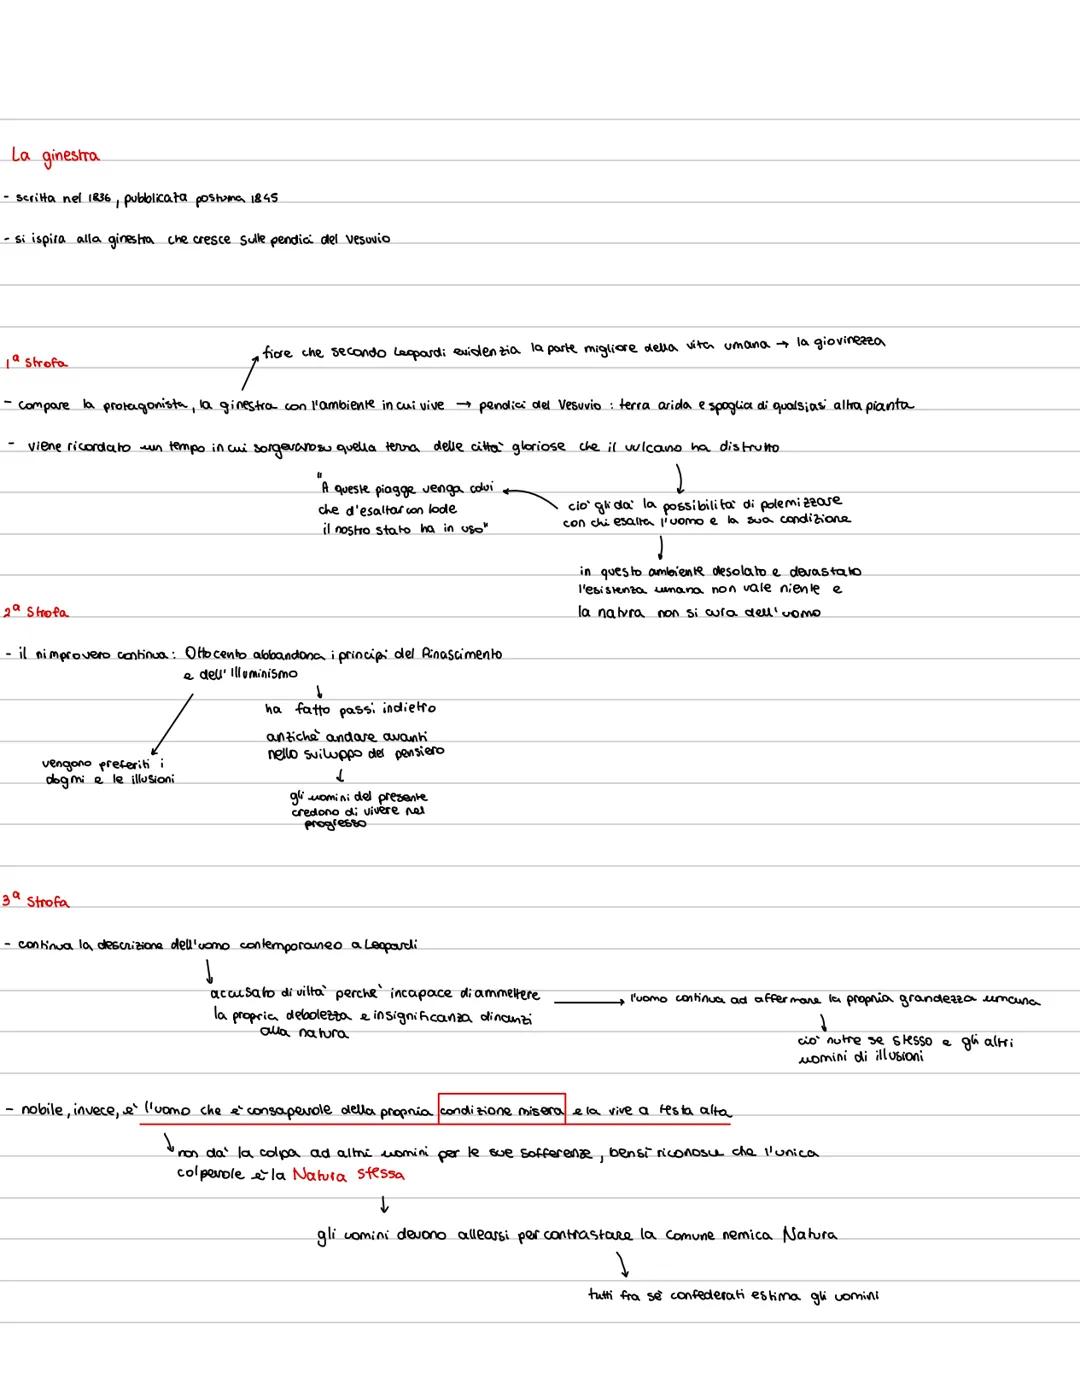 La ginestra
- scritta nel 1836, pubblicata postuma 1845
- si ispira alla ginestra che cresce sulle pendici del Vesuvio
fiore che secondo Leopardi evidenzia la parte migliore della vita umana → la giovinezza
1ª Strofa
- compare la protagonista, la ginestra con l'ambiente in cui vive → pendici del Vesuvio : terra arida e spoglia di qualsiasi altra pianta
- viene ricordato un tempo in cui sorgevano su quella terra delle città gloriose che il vulcano ha distrutto
"A queste piagge venga colui
che d'esaltar con lode
il nostro stato ha in uso"
ciò gli dà la possibilità di polemizzare
con chi esalta l'uomo e la sua condizione
in questo ambiente desolato e devastato
l'esistenza umana non vale niente e
la natura non si cura dell'uomo
2ª Strofa
- il rimprovero continua: Ottocento abbandona i principi del Rinascimento
e dell'Illuminismo
ha fatto passi indietro
anziché andare avanti
nello sviluppo del pensiero
vengono preferiti i
dogmi e le illusioni
gli uomini del presente
credono di vivere nel
progresso
3ª Strofa
- continua la descrizione dell'uomo contemporaneo a Leopardi
accusato di viltà perché incapace di ammettere
la propria debolezza e insignificanza dinanzi
alla natura
l'uomo continua ad affermare la propria grandezza umana
ciò nutre se stesso e gli altri
uomini di illusioni
- nobile, invece, è l'uomo che è consapevole della propria condizione misera e la vive a testa alta
non dà la colpa ad altri uomini per le sue sofferenze, bensì riconosce che l'unica
colpevole è la Natura stessa
gli uomini devono allearsi per contrastare la comune nemica Natura
tutti fra sé confederati estima gli uomini